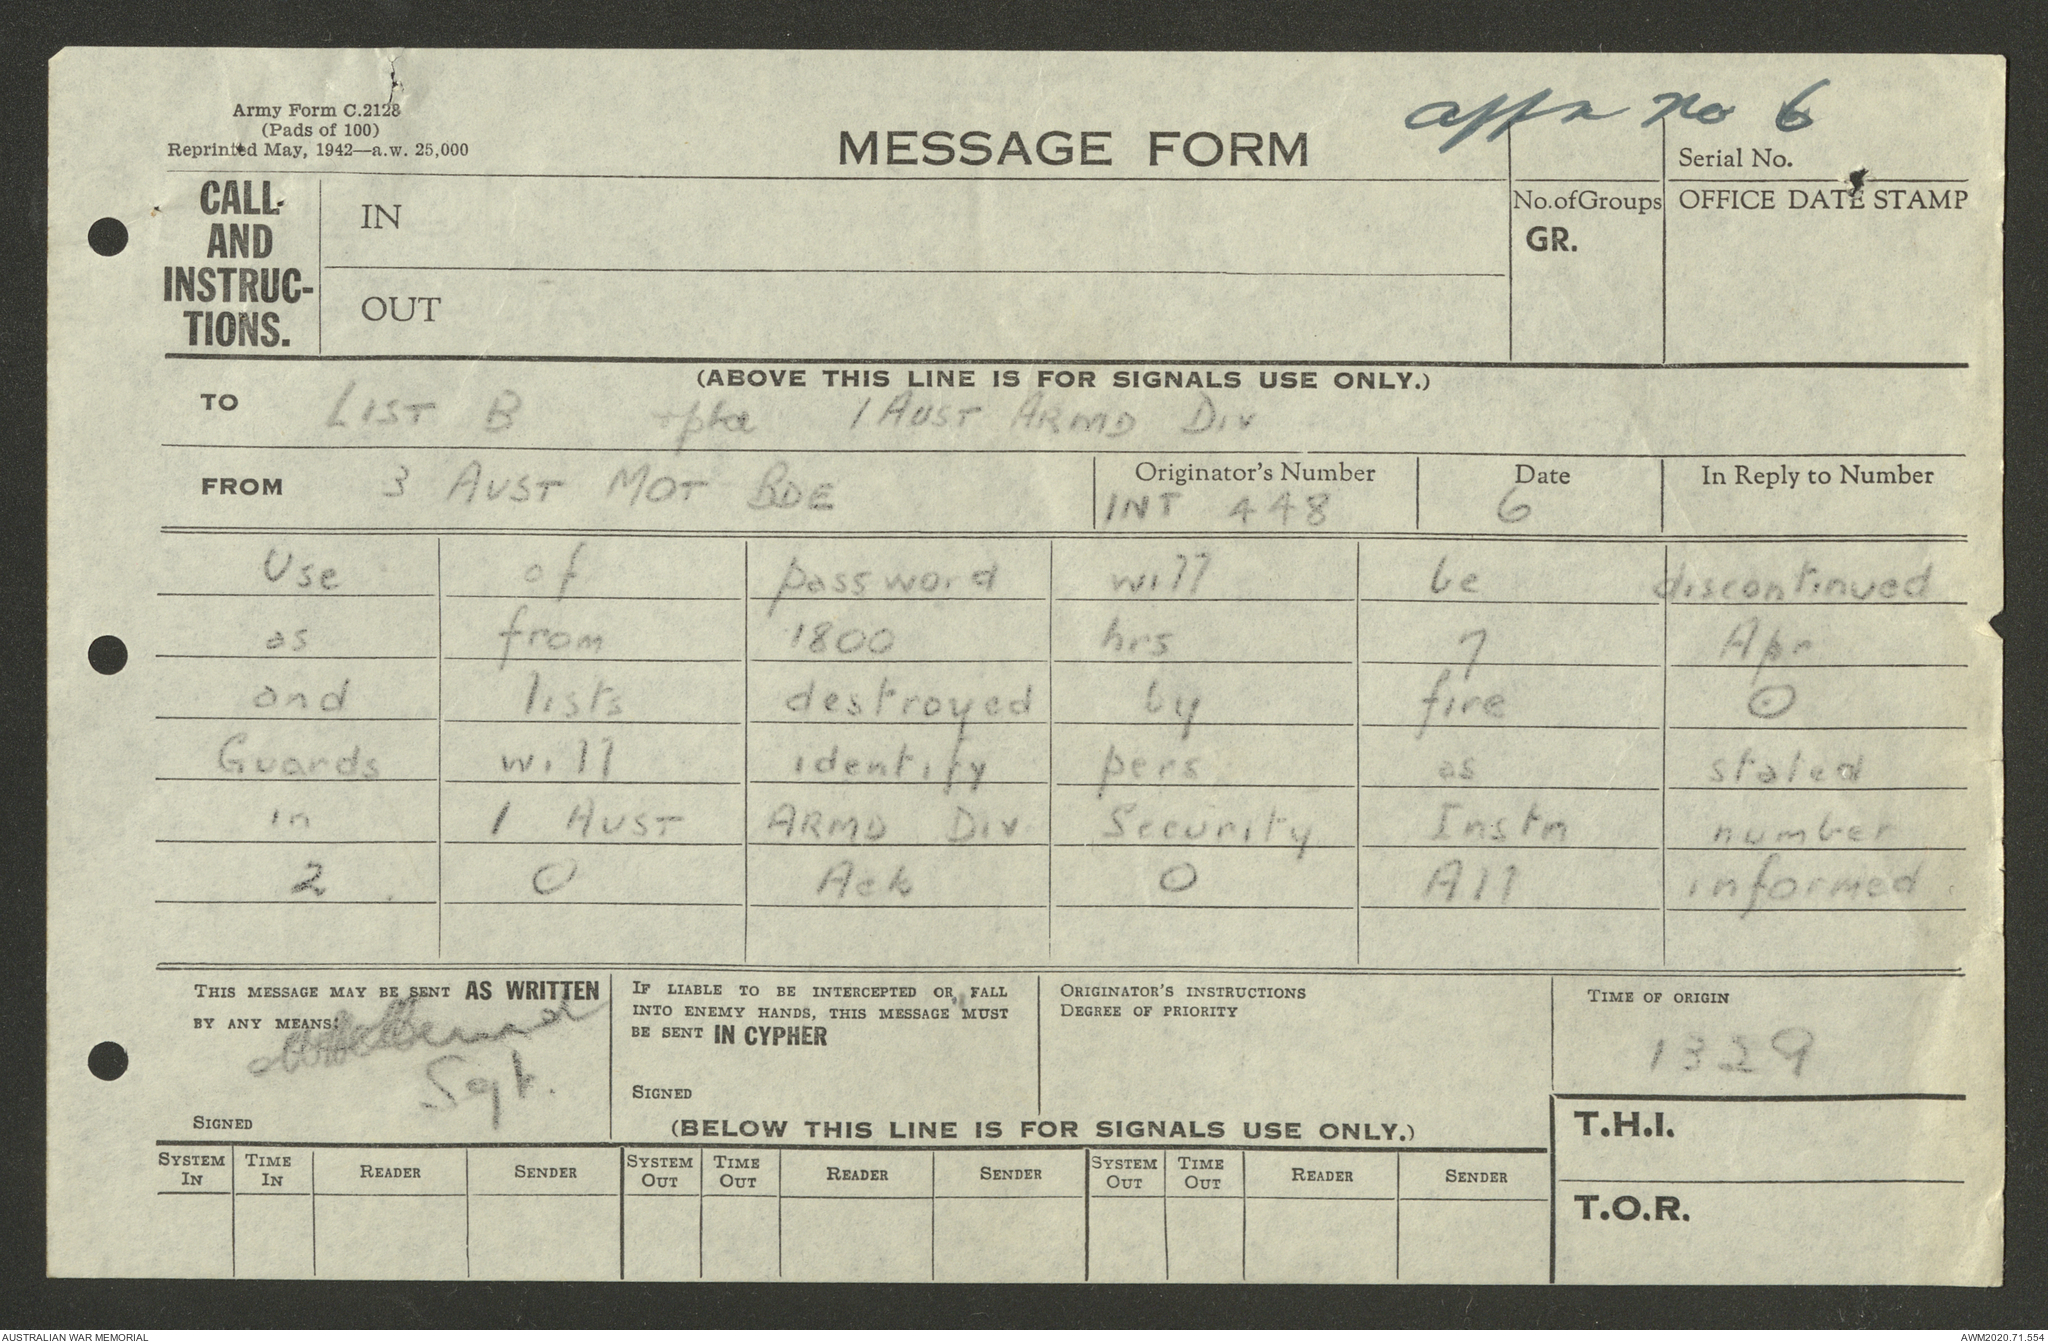 Army Form C.2128
(Pads of 100)
Reprinted May, 1942—a.w. 25,000
MESSAGE FORM
appx no 6
Serial No.
CALL AND INSTRUC-TIONS.
IN
No. of Groups
GR.
OFFICE DATE STAMP
OUT
(ABOVE THIS LINE IS FOR SIGNALS USE ONLY.)
TO LIST B rptd 1 AUST ARMD DIV
FROM 3 AUST MOT BDE
Originator's Number INT 448
Date 6
In Reply to Number
Use of password will be discontinued
as from 1800 hrs 7 Apr
and lists destroyed by fire O
Guards will identify pers as stated
in 1 AUST ARMD DIV Security Instn number
2 O Ack O All informed
THIS MESSAGE MAY BE SENT AS WRITTEN
BY ANY MEANS:
Sgt.
SIGNED
IF LIABLE TO BE INTERCEPTED OR FALL
INTO ENEMY HANDS, THIS MESSAGE MUST
BE SENT IN CYPHER
SIGNED
ORIGINATOR'S INSTRUCTIONS
DEGREE OF PRIORITY
TIME OF ORIGIN
1329
(BELOW THIS LINE IS FOR SIGNALS USE ONLY.)
T.H.I.
T.O.R.
SYSTEM IN TIME IN READER SENDER SYSTEM OUT TIME OUT READER SENDER SYSTEM OUT TIME OUT READER SENDER
AUSTRALIAN WAR MEMORIAL
AWM2020.71.554